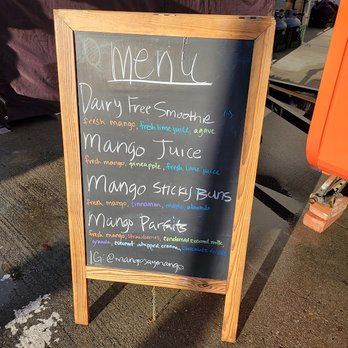 Menu
Dairy Free Smoothe
fresh mango, fresh lime juice, agave
Mango Juice
fresh mango, pineapple, fresh lime juice
Mango Sticky Buns
fresh mango, cinnamon, maple, almonds
Mango Parfaits
fresh mango, strawberries, condensed coconut milk
granola, coconut whipped cream,
IG: @mangosaymango